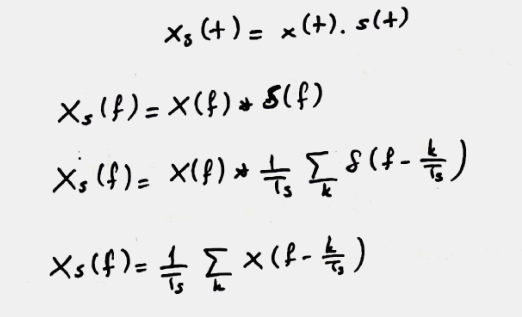 x_δ(t) = x(t). s(t)
X_s(f) = X(f) * S(f)
X_s(f) = X(f) * 1/T_s Σ_k δ(f - k/T_s)
X_s(f) = 1/T_s Σ_k X(f - k/T_s)